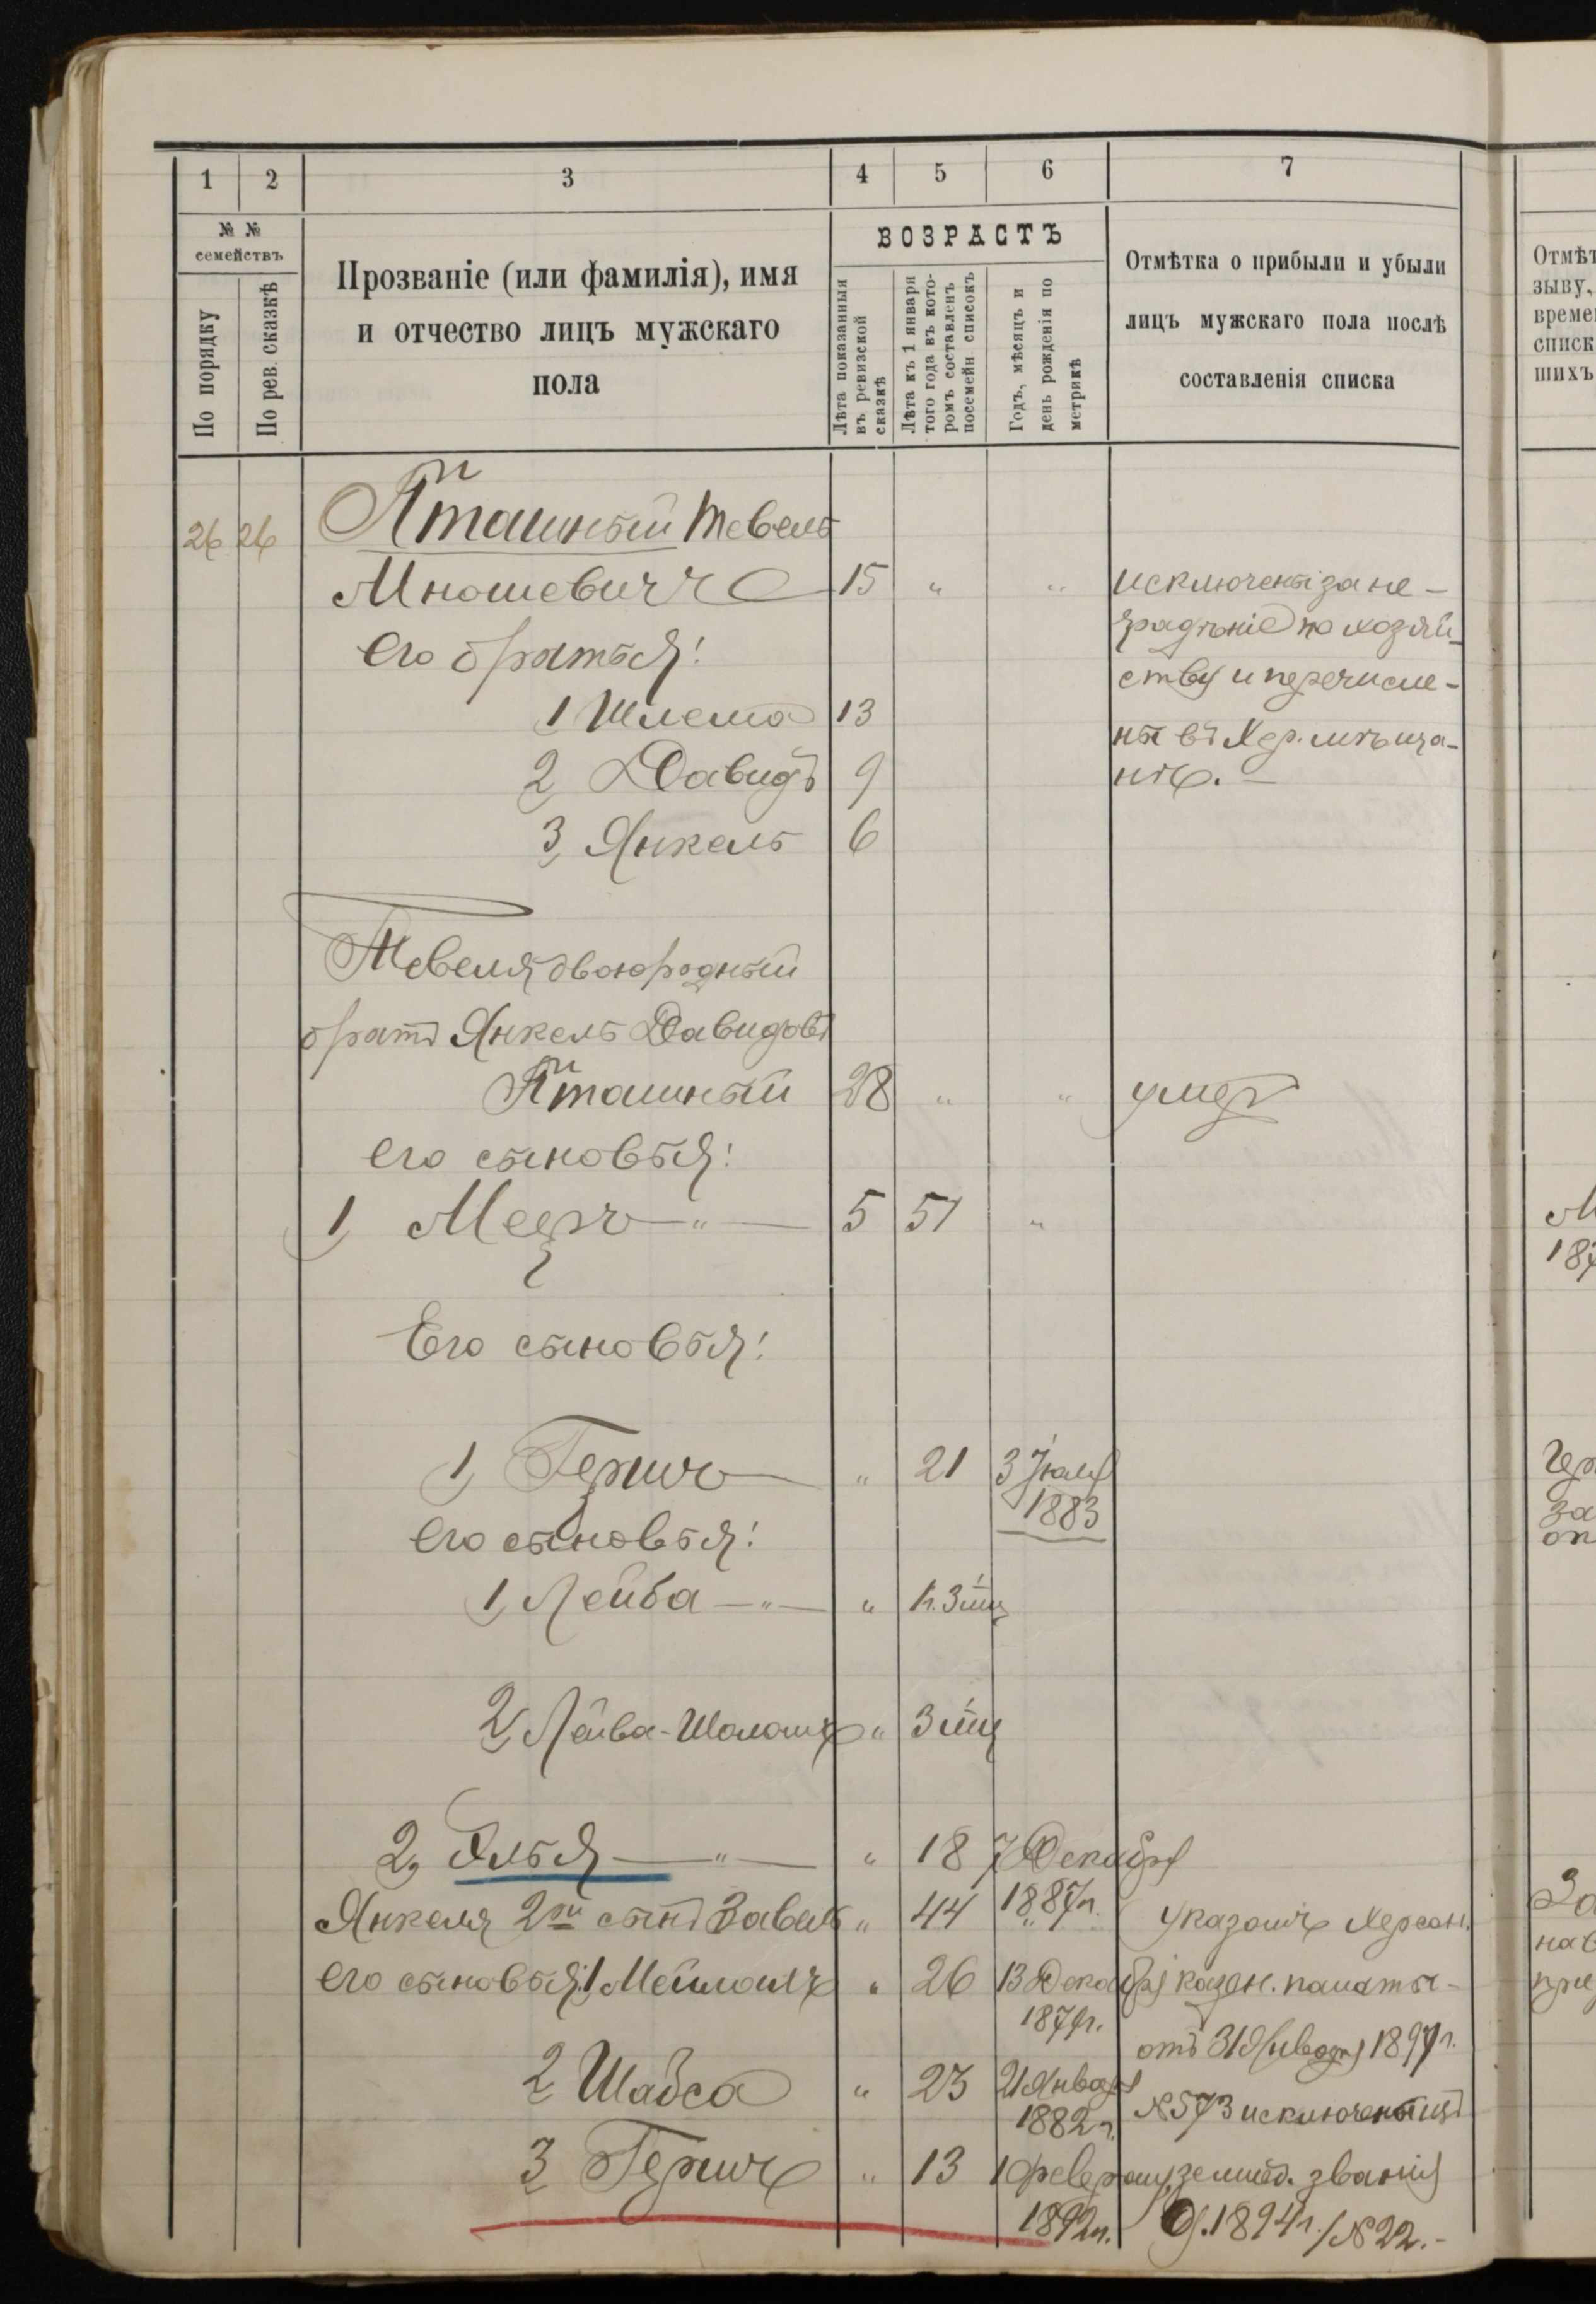 1 2 3 4 5 6 7
№ №
семействъ
По порядку
По рев. сказкѣ
Прозваніе (или фамилія), имя
и отчество лицъ мужскаго
пола
ВОЗРАСТЪ
Лѣта показанныя
въ ревизской
сказкѣ
Лѣта къ 1 января
того года въ кото-
ромъ составленъ
посемейн списокъ
Годъ, мѣсяцъ и
день рожденія по
метрикѣ
Отмѣтка о прибыли и убыли
лицъ мужскаго пола послѣ
составленія списка
Отмѣт
зыву,
време
списк
шихъ
26 26 Пташный Тевель
15 " "
исключены за не-
его братья:
радѣніе по хозяй-
ству и перечисле-
1 Шлема 13
ны въ Хер. мѣща-
2, Давидъ 9
не. -
3, Янкель 6
Тевеля двоюродный
братъ Янкель Давидовъ
Пташный 28 " " умеръ
его сыновья:
1, Мееръ - " - 5 51 "
187
Его сыновья:
1, Гершъ " 21 3 Іюля
1883
его сыновья:
за
1, Лейба - " - "
2, Лейва-Шоломъ " 3
2, Элья - " - " 18 7 Декабря
1887г.
Янкеля 2й сынъ Завель " 44 " Указомъ Херсон.
его сыновья: 1, Мейлахъ " 26 13 Декабря казен. палаты-
1879г.
отъ 31 Января 1897г.
2 Шабса " 23 21 Января
1882г. №573 исключены изъ
3 Гершъ " 13 10 февраля землед. званія
1892г. Д. 1894г. / №22.-